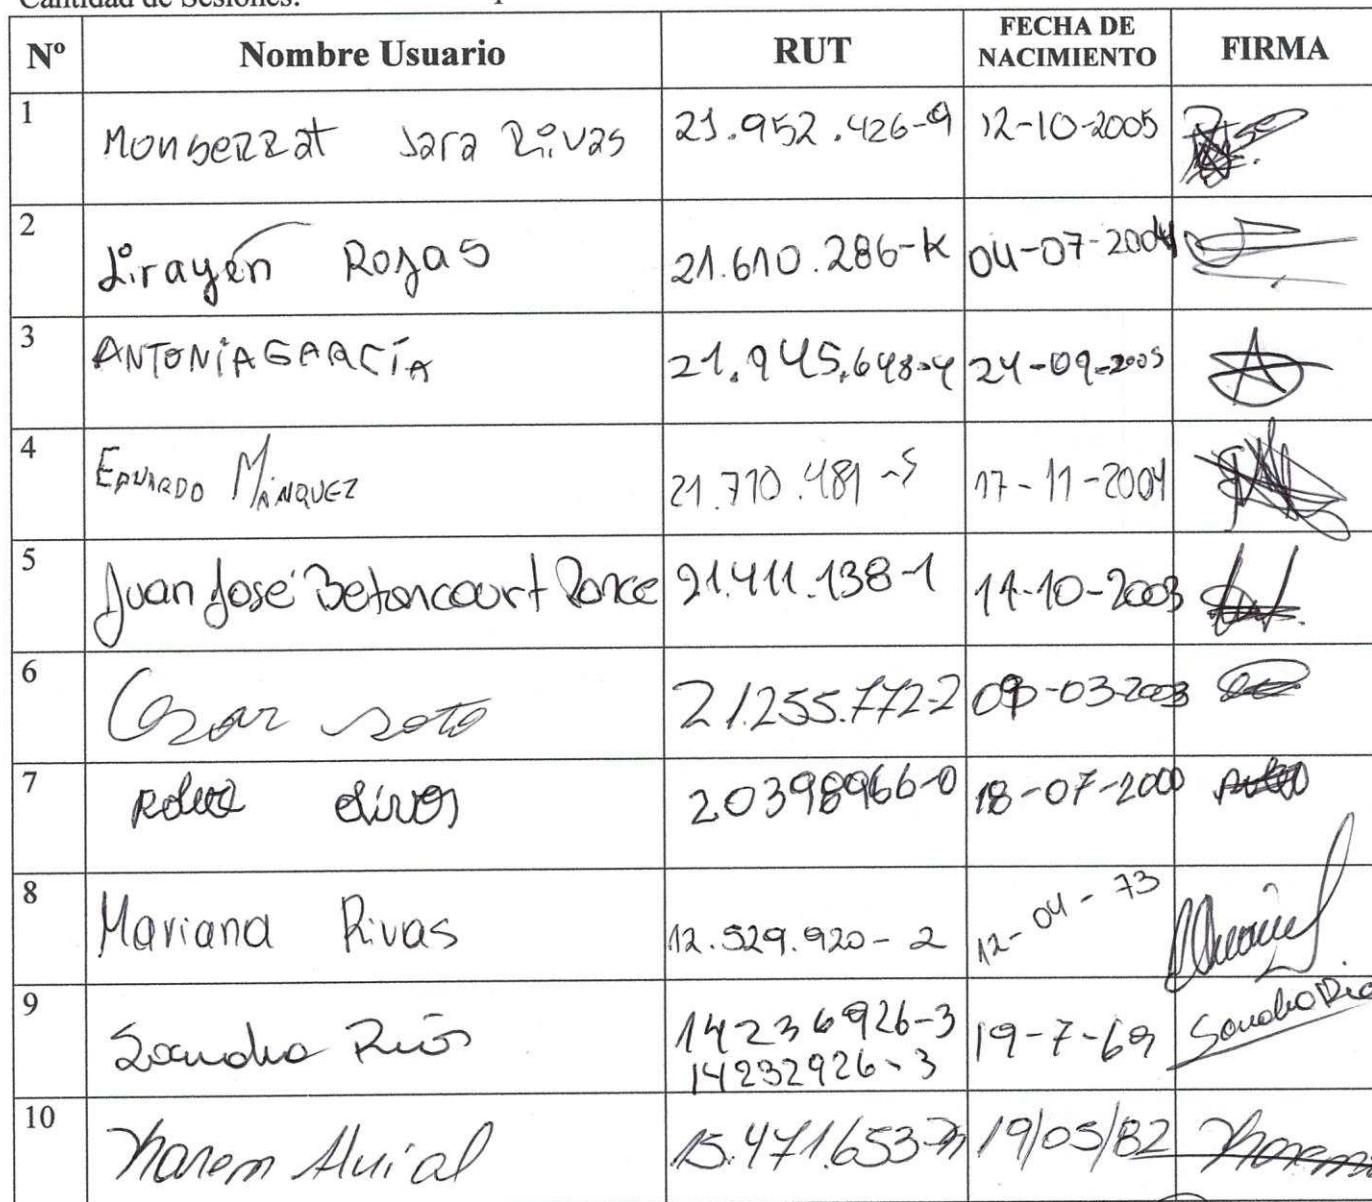 Cantidad de Sesiones:
Nº Nombre Usuario RUT FECHA DE NACIMIENTO FIRMA
1 Monserrat Jara Rivas 21.952.426-9 12-10-2005
2 Lirayén Rojas 21.610.286-K 04-07-2004
3 ANTONIA GARCÍA 21.945.648-4 24-09-2005
4 EDUARDO MÁNQUEZ 21.710.481-5 17-11-2004
5 Juan José Betancourt Ponce 21.411.138-1 14-10-2003
6 Cesar Soto 21.255.772-2 09-03-2003
7 20398966-0 18-07-2000
8 Mariana Rivas 12.529.920-2 12-04-73
9 Sandra Ríos 14236926-3 19-7-69 Sandra Rio
14232926-3
10 Karem Huial 15.471.653- 19/05/82 Karem